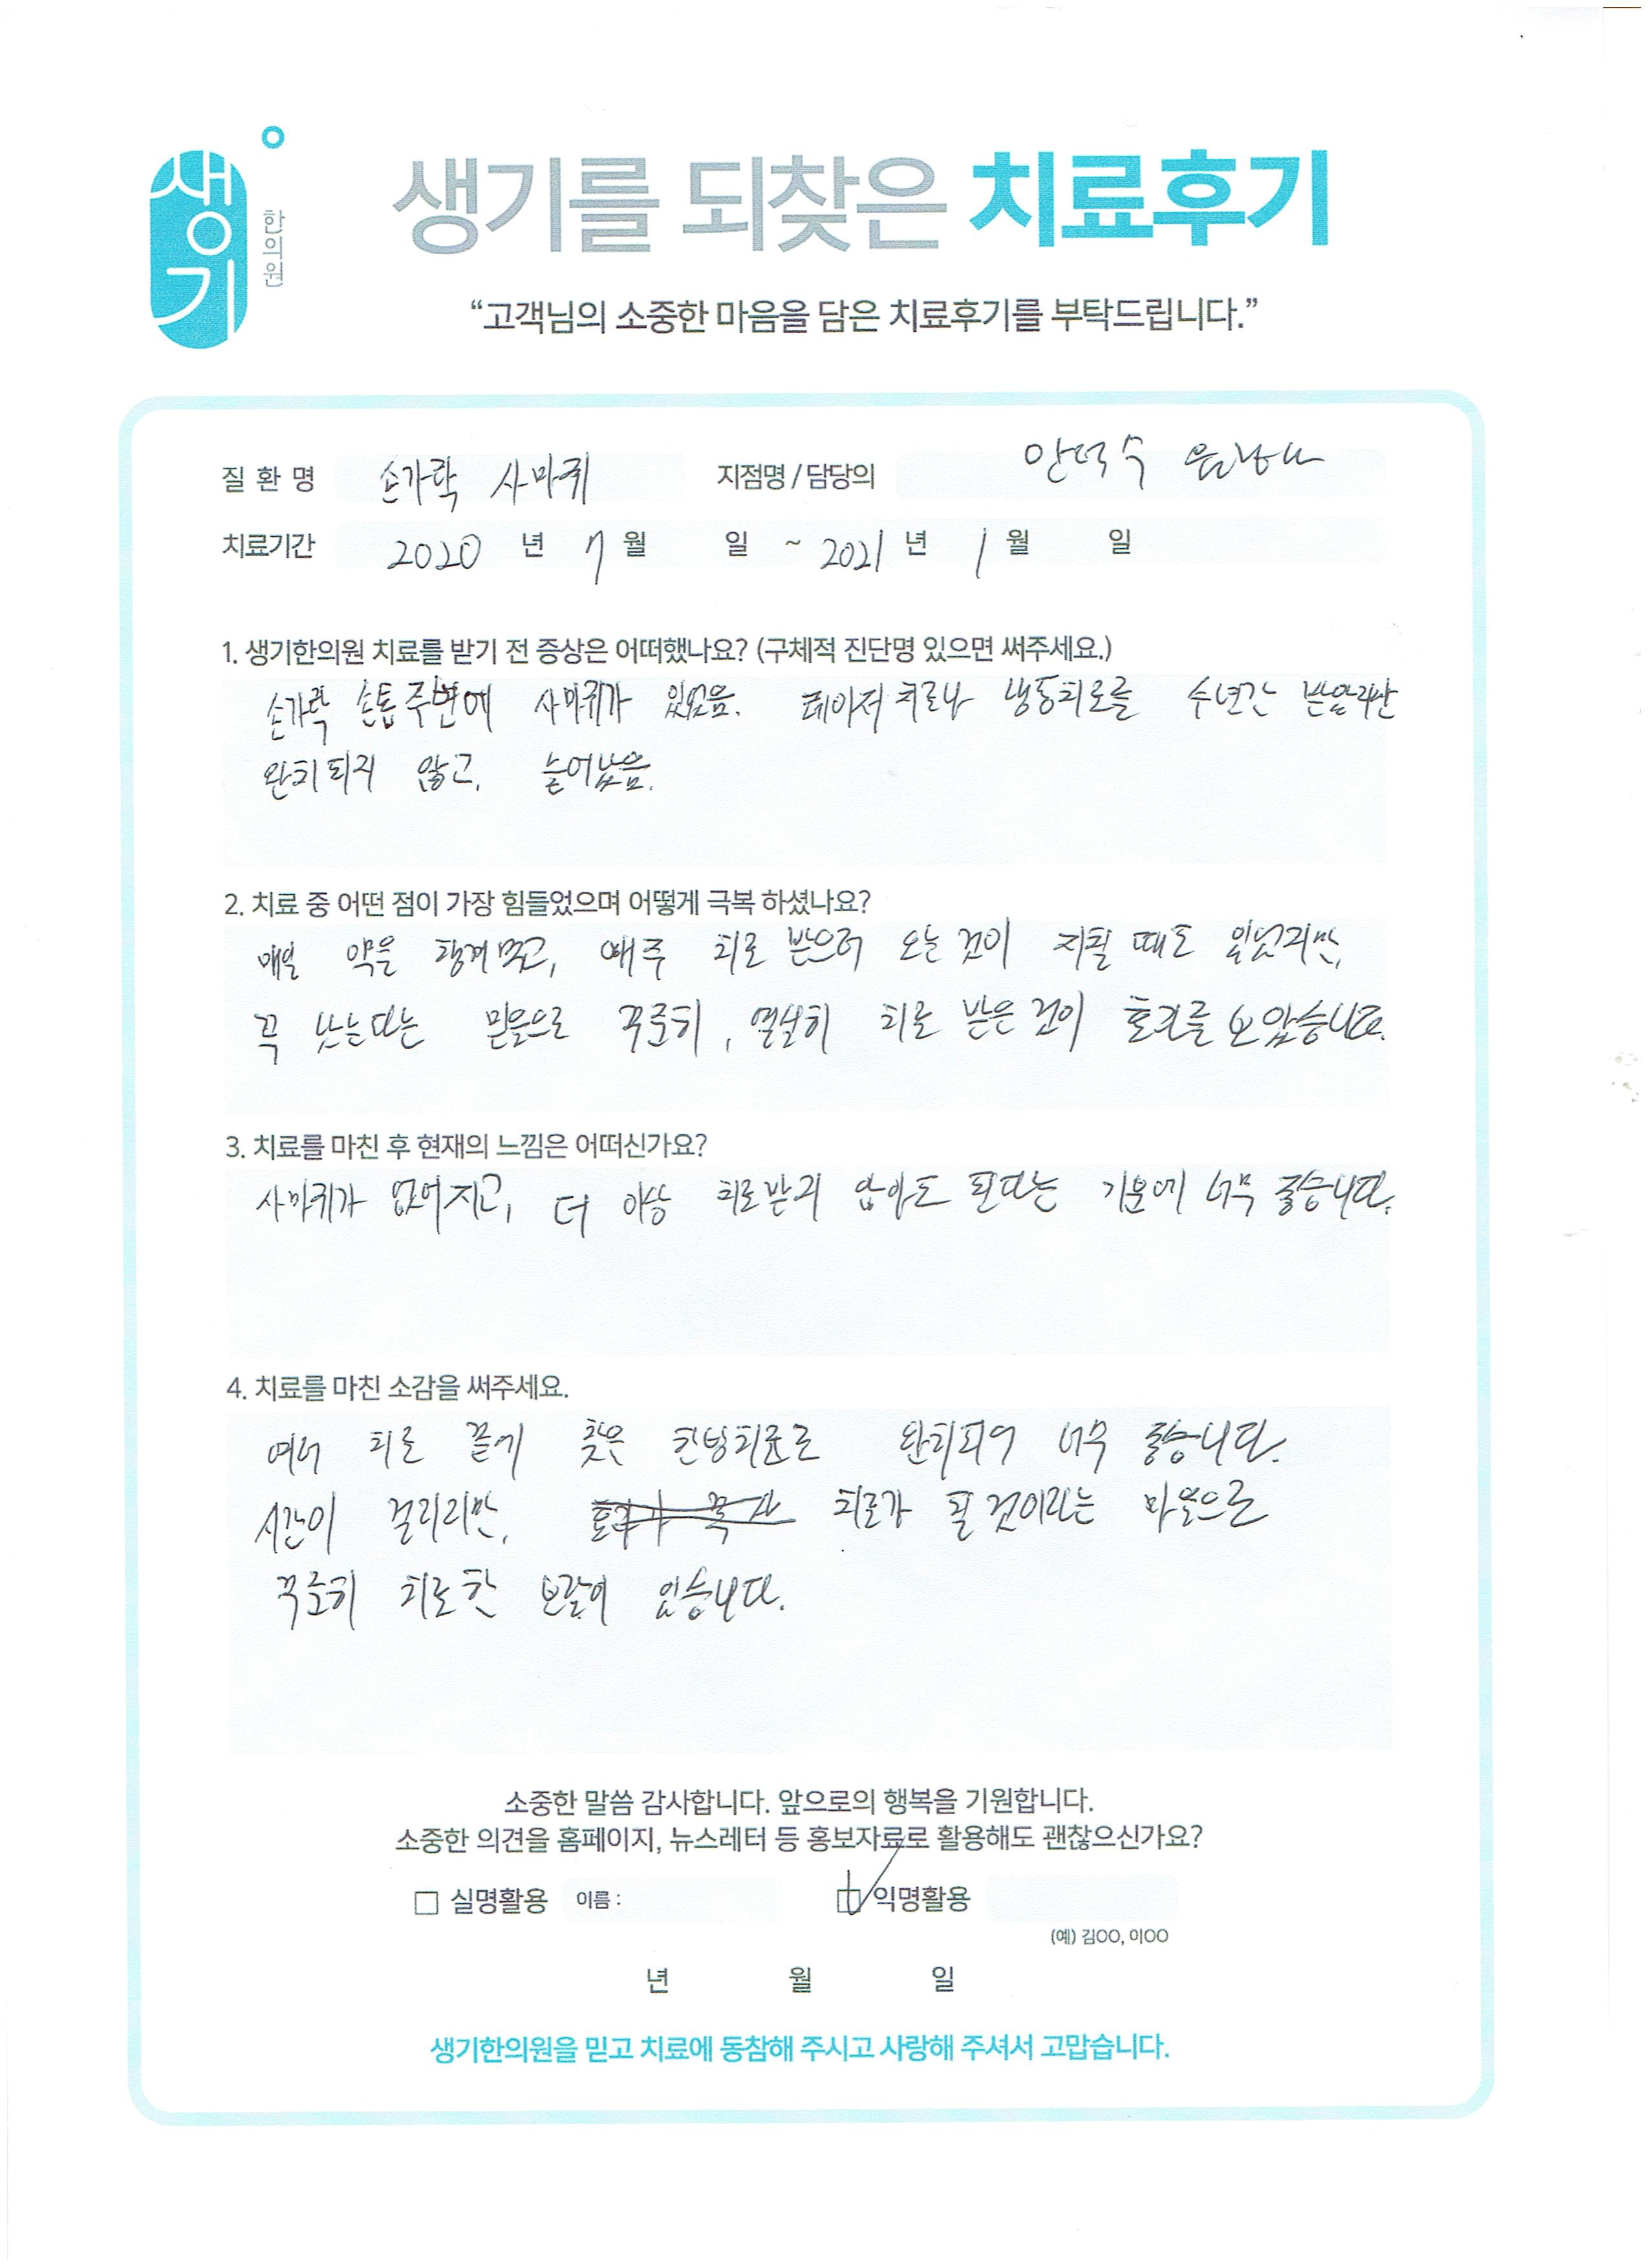 생기
한의원
생기를 되찾은 치료후기
“고객님의 소중한 마음을 담은 치료후기를 부탁드립니다.”
질 환 명 손가락 사마귀 지점명 / 담당의 안덕수
치료기간 2020 년 7 월 일 ~ 2021 년 1 월 일
1. 생기한의원 치료를 받기 전 증상은 어떠했나요? (구체적 진단명 있으면 써주세요.)
손가락 손톱 주변에 사마귀가 있었음. 레이저 치료나 냉동치료를 수년간 받았지만
완치되지 않고, 늘어났음.
2. 치료 중 어떤 점이 가장 힘들었으며 어떻게 극복 하셨나요?
매일 약을 챙겨먹고, 매주 치료 받으러 오는 것이 지칠 때도 있었지만,
꼭 낫는다는 믿음으로 꾸준히, 열심히 치료 받은 것이 효과를 보았습니다.
3. 치료를 마친 후 현재의 느낌은 어떠신가요?
사마귀가 없어지고, 더 이상 치료받지 않아도 된다는 기분에 너무 좋습니다.
4. 치료를 마친 소감을 써주세요.
여러 치료 끝에 찾은 한방치료로 완치되어 너무 좋습니다.
시간이 걸리지만, 치료가 될 것이라는 마음으로
꾸준히 치료한 보람이 있습니다.
소중한 말씀 감사합니다. 앞으로의 행복을 기원합니다.
소중한 의견을 홈페이지, 뉴스레터 등 홍보자료로 활용해도 괜찮으신가요?
□ 실명활용 이름 : ☑ 익명활용
(예) 김OO, 이OO
년 월 일
생기한의원을 믿고 치료에 동참해 주시고 사랑해 주셔서 고맙습니다.